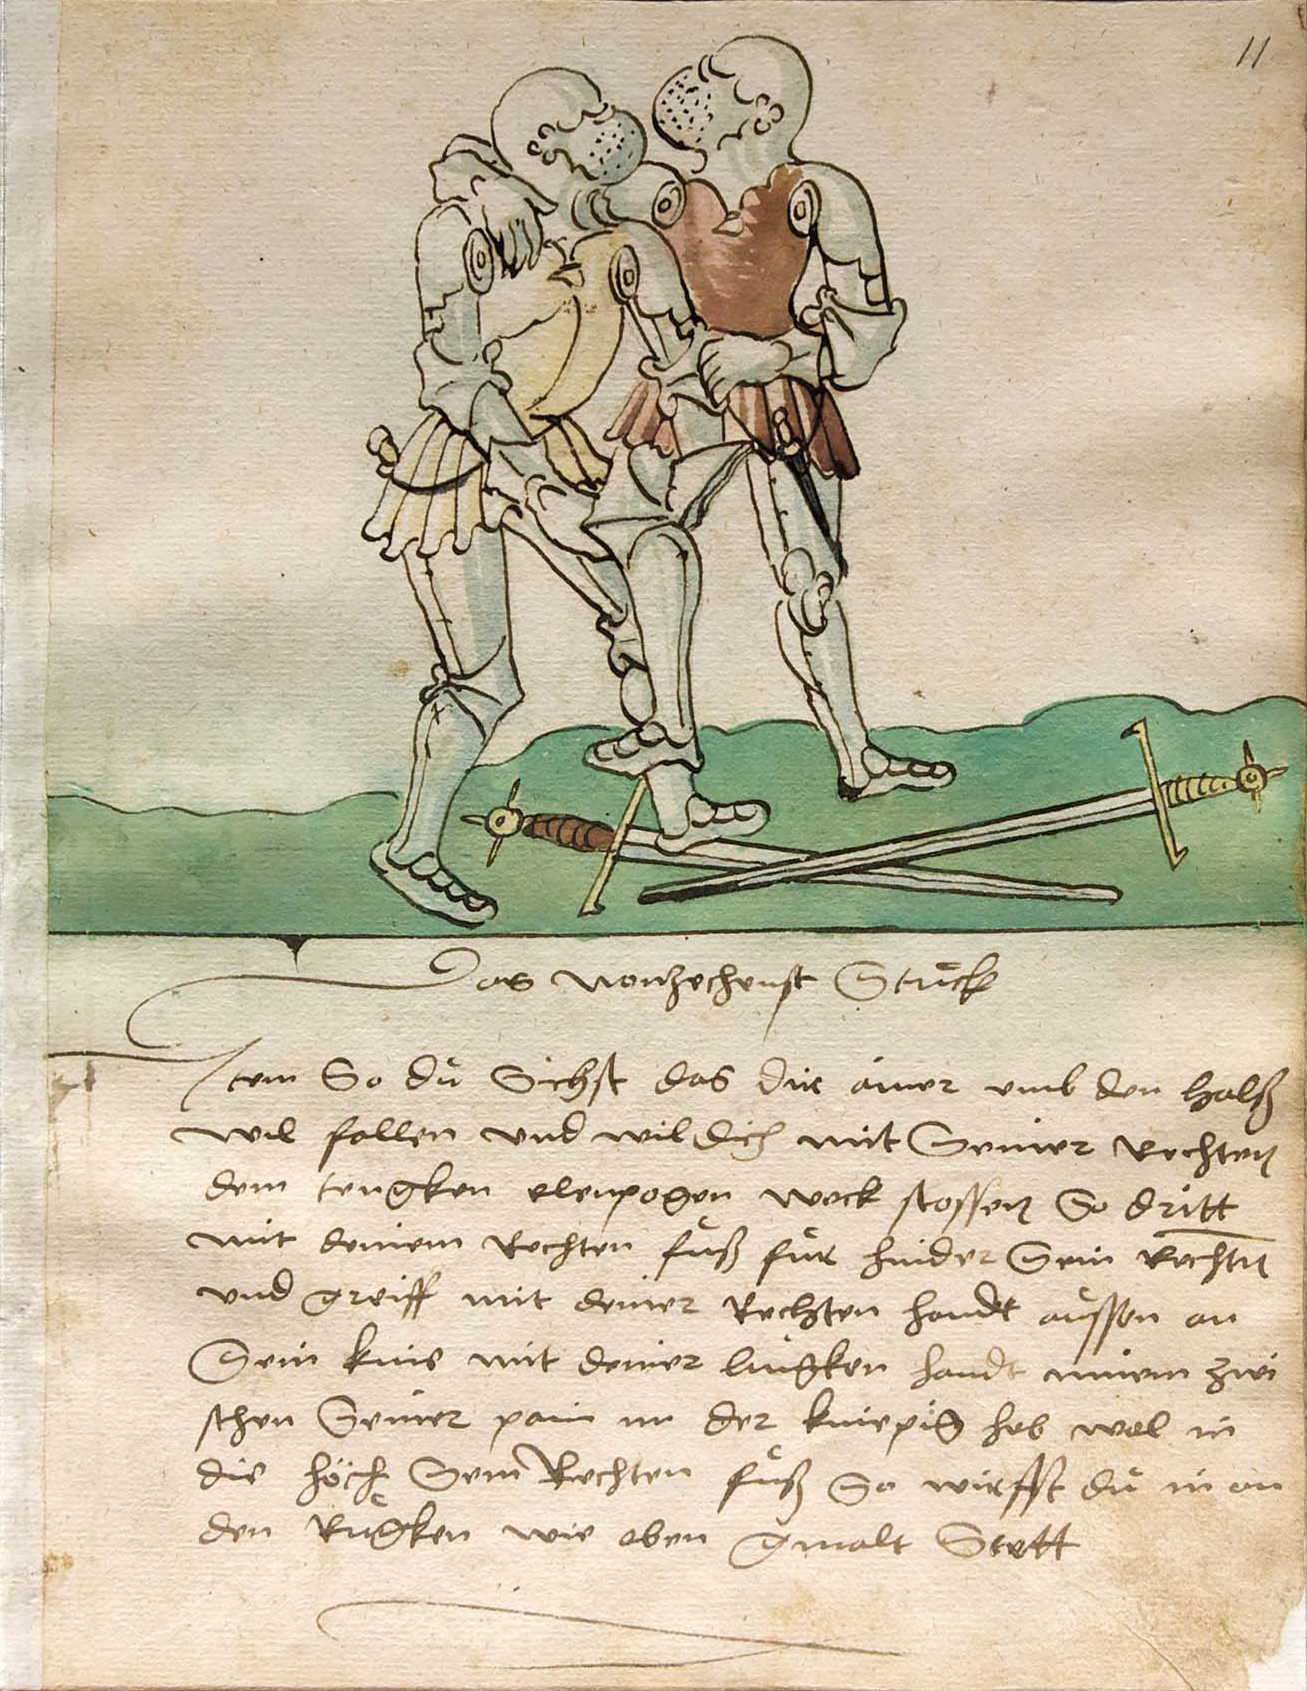 11
Das Nonzechenst Stuck
Item So du Sichst das dir ainer umb den halß
wil fallen und wil dich mit Seiner Rechten
dem tengken elenpogen weck stossen So dritt
mit deinem Rechten fuß fur hinder Sein Rechtn
und greiff mit deiner Rechten handt aussen an
Sein knie mit deiner lingken handt zwi
schen Seiner pain in der kniepüg heb wol in
die höch Sein Rechten fuß So wirffst du in an
den Rugken wie oben gmalt Stett